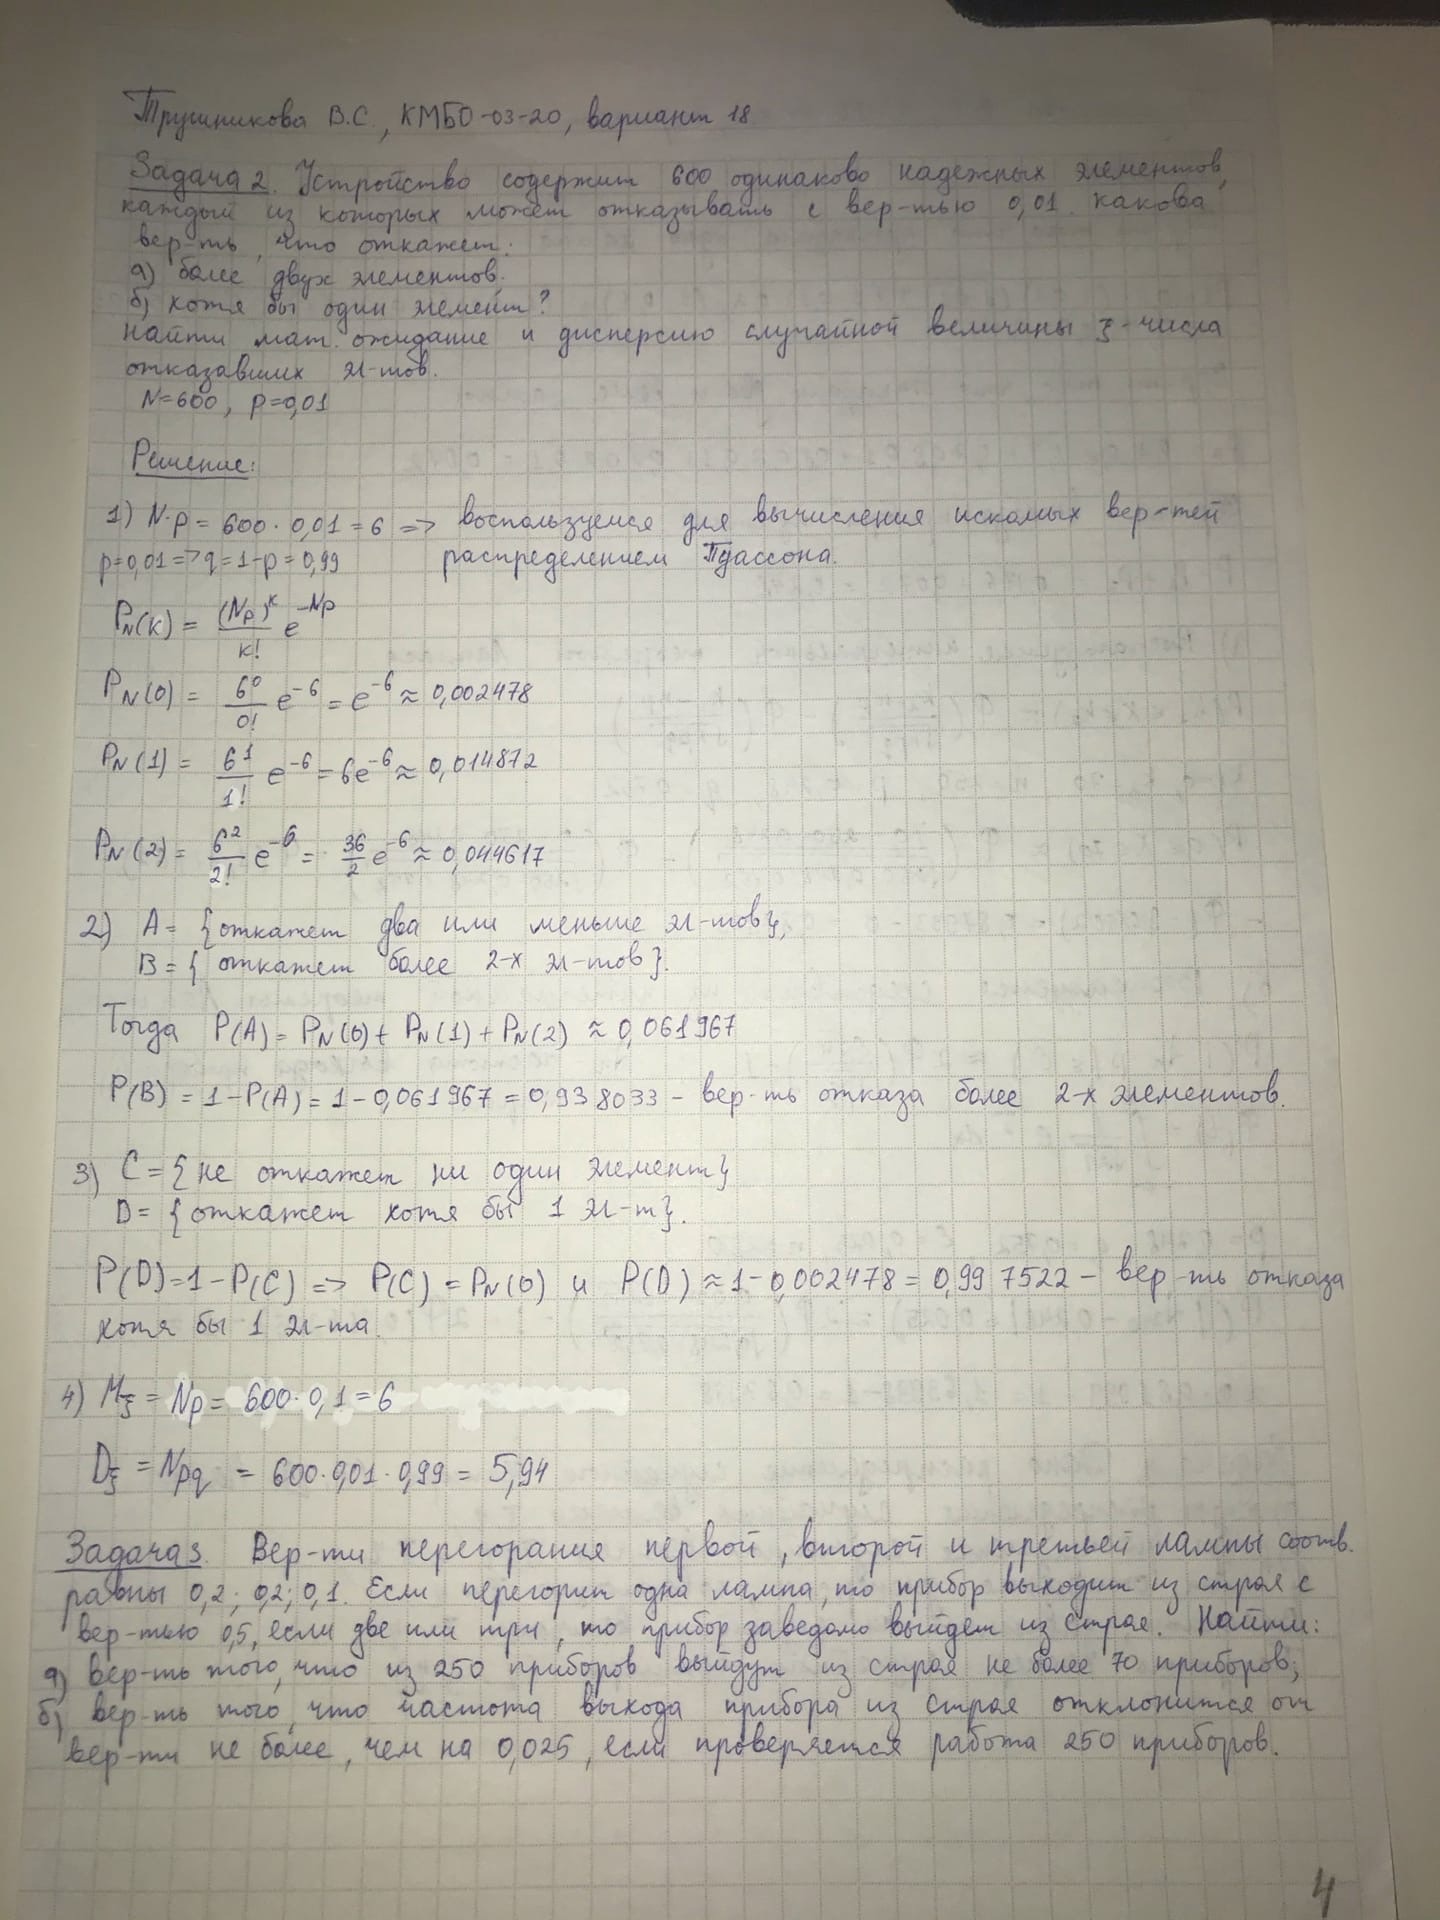 Трушникова В.С., КМБО-03-20, вариант 18
Задача 2. Устройство содержит 600 одинаково надежных элементов,
каждый из которых может отказывать с вер-тью 0,01. какова
вер-ть, что откажет:
а) более двух элементов.
б) хотя бы один элемент?
Найти мат. ожидание и дисперсию случайной величины ξ-числа
отказавших эл-тов.
N=600, p=0,01
Решение:
1) N·p = 600·0,01 = 6 => воспользуемся для вычисления искомых вер-тей
p=0,01 => q=1-p=0,99 распределением Пуассона.
P_N(k) = (Np)^k / k! e^{-Np}
P_N(0) = 6^0 / 0! e^{-6} = e^{-6} ≈ 0,002478
P_N(1) = 6^1 / 1! e^{-6} = 6e^{-6} ≈ 0,014872
P_N(2) = 6^2 / 2! e^{-6} = 36/2 e^{-6} ≈ 0,044617
2) A = {откажет два или меньше эл-тов},
B = { откажет более 2-х эл-тов}.
Тогда P(A) = P_N(0) + P_N(1) + P_N(2) ≈ 0,061967
P(B) = 1-P(A) = 1-0,061967 = 0,938033 - вер-ть отказа более 2-х элементов.
3) C = {не откажет ни один элемент}
D = {откажет хотя бы 1 эл-т}.
P(D)=1-P(C) => P(C) = P_N(0) и P(D) ≈ 1-0,002478 = 0,997522 - вер-ть отказа
хотя бы 1 эл-та.
4) Mξ = Np = 600·0,1 = 6
Dξ = Npq = 600·0,01·0,99 = 5,94
Задача 3. Вер-ти перегорания первой, второй и третьей лампы соотв.
равны 0,2; 0,2; 0,1. Если перегорит одна лампа, то прибор выходит из строя с
вер-тью 0,5, если две или три, то прибор заведомо выйдет из строя. Найти:
а) вер-ть того, что из 250 приборов выйдут из строя не более 70 приборов;
б) вер-ть того, что частота выхода прибора из строя отклонится от
вер-ти не более, чем на 0,025, если проверяется работа 250 приборов.
4